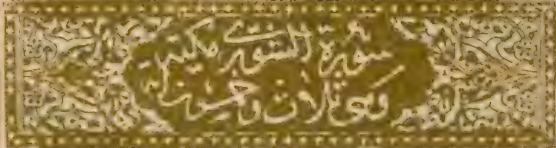 سورة الشورى مكية
وهى ثلاث وخمسون اية